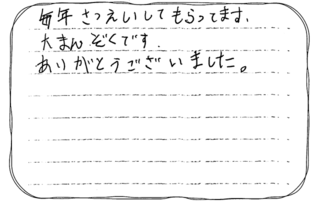 毎年さつえいしてもらってます.
大まんぞくです.
ありがとうございました。